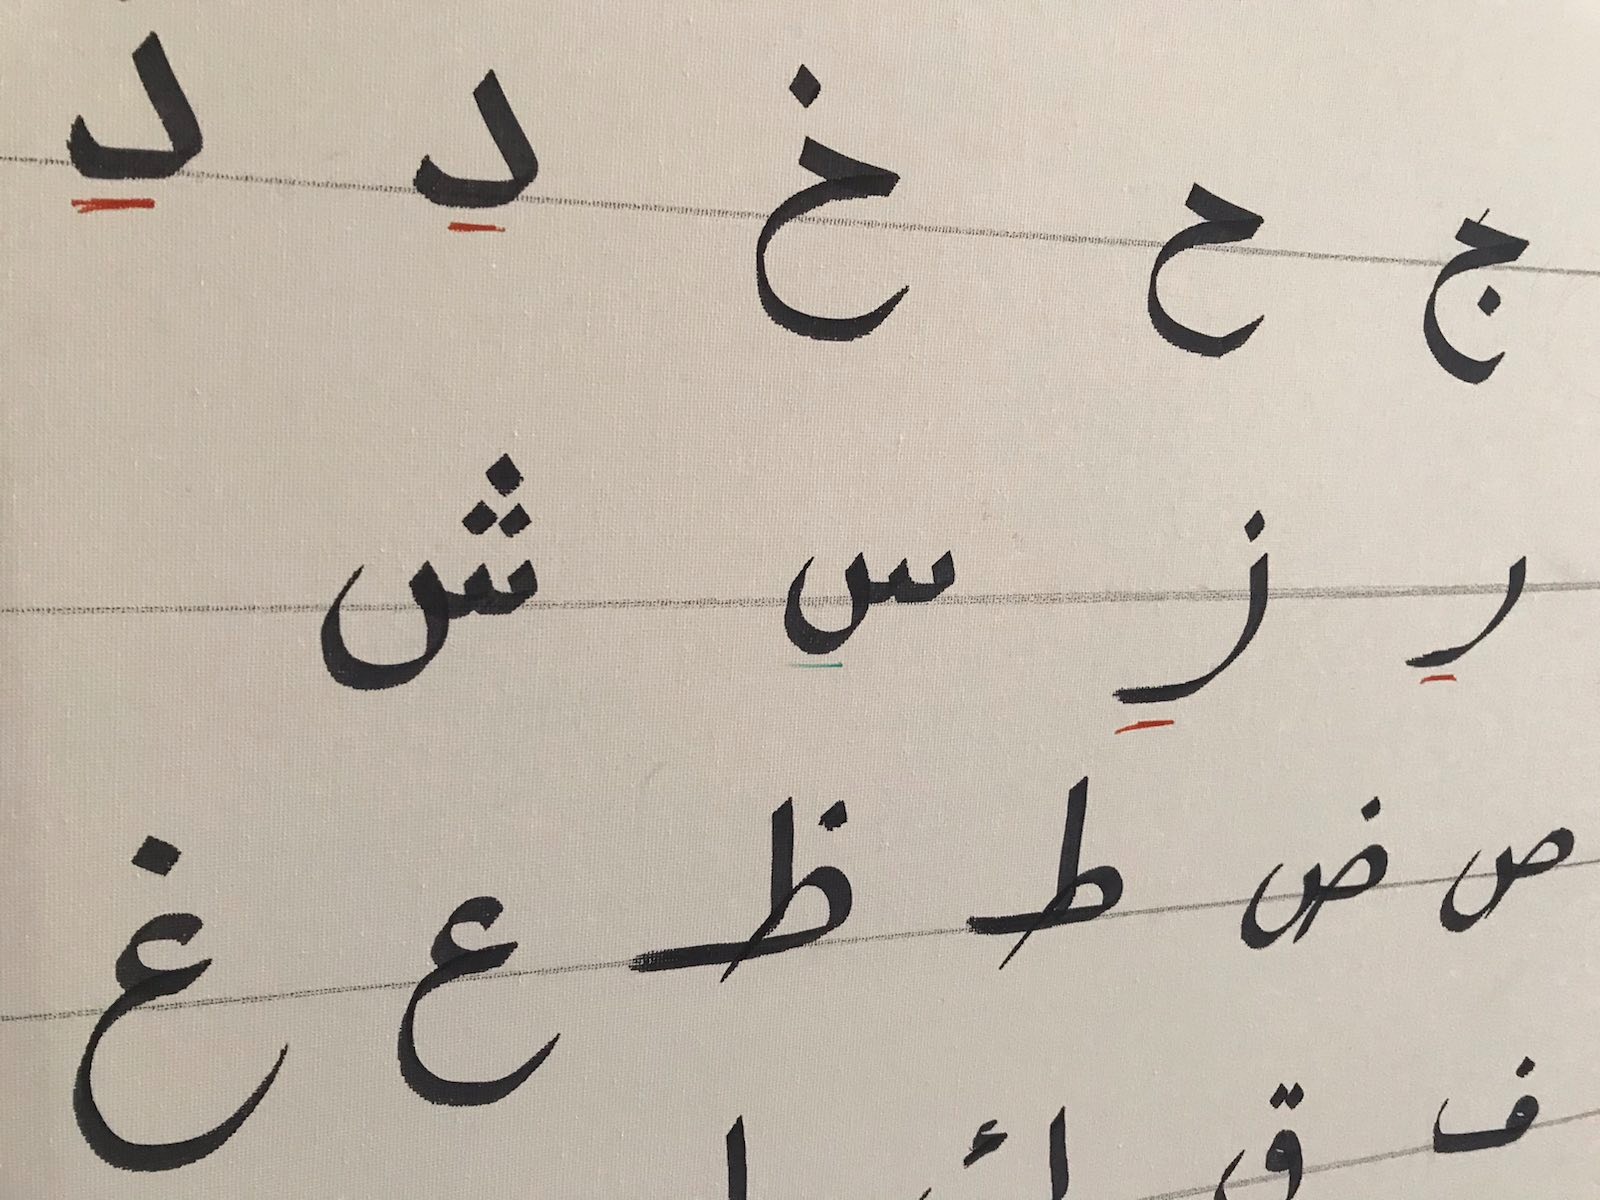 ج ح خ د ذ
ر ز س ش
ص ض ط ظ ع غ
ف ق ك